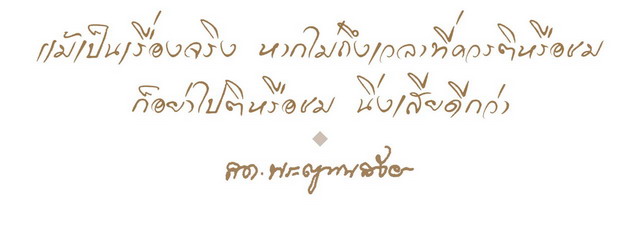 แม้เป็นเรื่องจริง หากไม่ถึงเวลาที่ควรติหรือชม
ก็อย่าไปติหรือชม นิ่งเสียดีกว่า